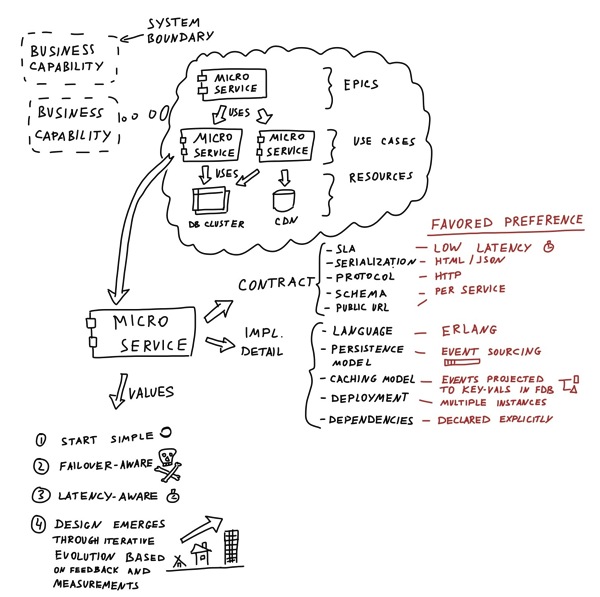 SYSTEM
BOUNDARY
BUSINESS
CAPABILITY
BUSINESS
CAPABILITY
MICRO
SERVICE
EPICS
USES
MICRO
SERVICE
MICRO
SERVICE
USE CASES
USES
RESOURCES
DB CLUSTER
CDN
FAVORED PREFERENCE
CONTRACT
- SLA – LOW LATENCY
- SERIALIZATION – HTML/JSON
- PROTOCOL – HTTP
- SCHEMA – PER SERVICE
- PUBLIC URL
MICRO
SERVICE
IMPL.
DETAIL
- LANGUAGE – ERLANG
- PERSISTENCE
MODEL – EVENT SOURCING
- CACHING MODEL – EVENTS PROJECTED
TO KEY-VALS IN FDB
- DEPLOYMENT – MULTIPLE INSTANCES
- DEPENDENCIES – DECLARED EXPLICITLY
VALUES
1 START SIMPLE
2 FAILOVER-AWARE
3 LATENCY-AWARE
4 DESIGN EMERGES
THROUGH ITERATIVE
EVOLUTION BASED
ON FEEDBACK AND
MEASUREMENTS